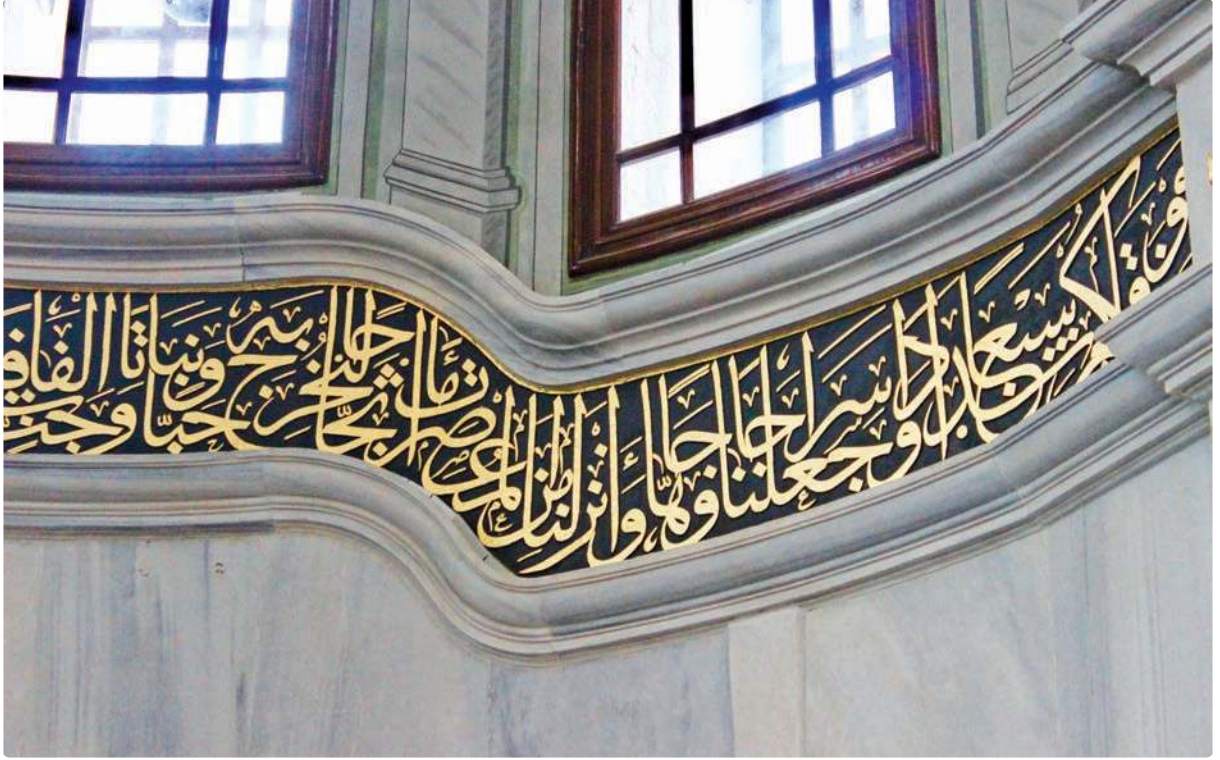 فوقكم سبعا شدادا وجعلنا سراجا وهاجا وانزلنا من المعصرات ماء ثجاجا لنخرج به حبا ونباتا وجنات الفافا